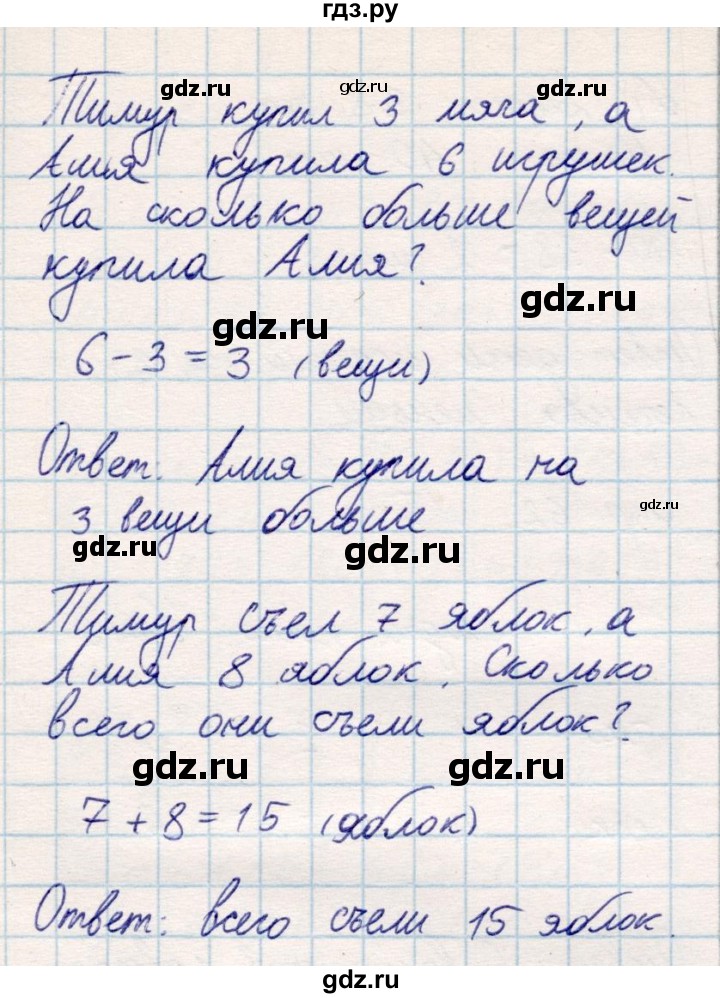 гдз.ру
gdz.ru gdz.ru gdz.ru
Тимур купил 3 мяча, а
Алия купила 6 игрушек.
На сколько больше вещей
купила Алия?
gdz.ru gdz.ru
6 - 3 = 3 (вещи)
Ответ: Алия купила на
gdz.ru
3 вещи больше
gdz.ru gdz.ru
Тимур съел 7 яблок, а
Алия 8 яблок. Сколько
всего они съели яблок?
gdz.ru gdz.ru
7 + 8 = 15 (яблок)
Ответ: всего съели 15 яблок.
gdz.ru